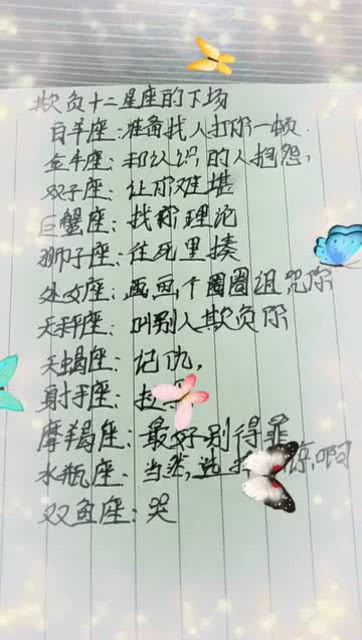 欺负十二星座的下场
白羊座：准备找人打你一顿.
金牛座：和认识的人抱怨，
双子座：让你难堪
巨蟹座：找你理论
狮子座：往死里揍
处女座：画画,个圈圈诅咒你
天秤座：叫别人欺负你
天蝎座：记仇，
射手座：拉
摩羯座：最好别得罪
水瓶座：当然,选择 谅啊
双鱼座：哭